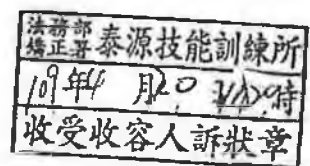 法務部
矯正署 泰源技能訓練所
109年4月20 時
收受收容人訴狀章